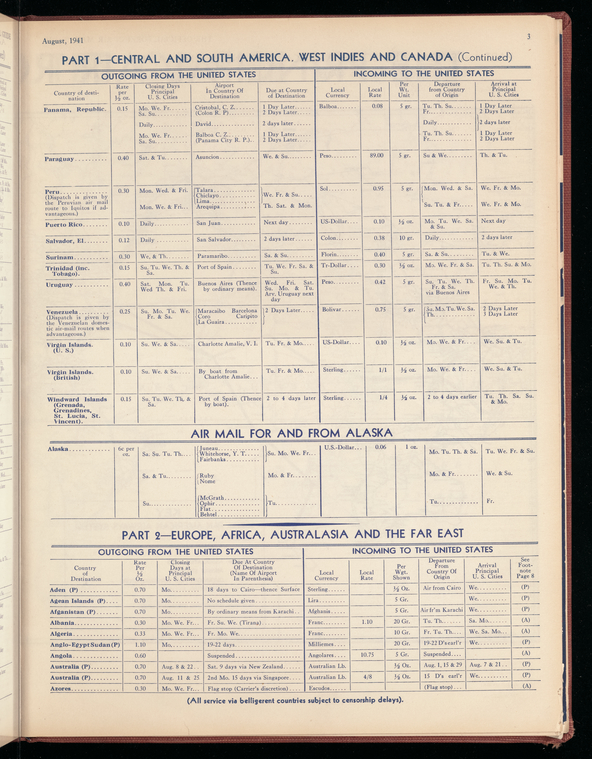 August, 1941
3
PART 1—CENTRAL AND SOUTH AMERICA. WEST INDIES AND CANADA (Continued)
OUTGOING FROM THE UNITED STATES
INCOMING TO THE UNITED STATES
Country of desti-nation | Rate per ½ oz. | Closing Days Principal U. S. Cities | Airport In Country Of Destination | Due at Country of Destination | Local Currency | Local Rate | Per Wt. Unit | Departure from Country of Origin | Arrival at Principal U. S. Cities
Panama, Republic. 0.15 Mo. We. Fr.... Cristobal, C. Z. 1 Day Later.... Balboa....... 0.08 5 gr. Tu. Th. Su.... 1 Day Later
Sa. Su. (Colon R. P.)... 2 Days Later... Fr. 2 Days Later
Daily David 2 days later Daily 2 days later
Mo. We. Fr..... Balboa C. Z... 1 Day Later.... Tu. Th. Su. 1 Day Later
Sa. Su. (Panama City R. P.).. 2 Days Later... Fr. 2 Days Later
Paraguay 0.40 Sat. & Tu. Asuncion We. & Su. Peso 89.00 5 gr. Su & We. Th. & Tu.
Peru 0.30 Mon. Wed. & Fri. Talara Sol 0.95 5 gr. Mon. Wed. & Sa. We. Fr. & Mo.
(Dispatch is given by the Peruvian air mail route to Iquitos if ad-vantageous.) Chiclayo We. Fr. & Su.
Lima
Mon. We. & Fri... Arequipa Th. Sat. & Mon. Su. Tu. & Fr. We. Fr. & Mo.
Puerto Rico 0.10 Daily San Juan Next day US-Dollar 0.10 ½ oz. Mo. Tu. We. Sa. & Su. Next day
Salvador, El 0.12 Daily San Salvador 2 days later Colon 0.38 10 gr. Daily 2 days later
Surinam 0.30 We. & Th. Paramaribo Sa. & Su. Florin 0.40 5 gr. Sa. & Su. Tu. & We.
Trinidad (inc. Tobago). 0.15 Su. Tu. We. Th. & Sa. Port of Spain Tu. We. Fr. Sa. & Su. Tr-Dollar 0.30 ½ oz. Mo. We. Fr. & Sa. Tu. Th. Su. & Mo.
Uruguay 0.40 Sat. Mon. Tu. Wed Th. & Fri. Buenos Aires (Thence by ordinary means). Wed. Fri. Sat. Su. Mo. & Tu. Arv. Uruguay next day Peso 0.42 5 gr. Su. Tu. We. Th. Fr. & Sa. via Buenos Aires Fr. Su. Mo. Tu. We. & Th.
Venezuela 0.25 Su. Mo. Tu. We. Fr. & Sa. Maracaibo Barcelona 2 Days Later Bolivar 0.75 5 gr. Su. Mo. Tu. We. Sa. 2 Days Later
(Dispatch is given by the Venezuelan domes-tic air-mail routes when advantageous.) Coro Caripito Th. 3 Days Later
La Guaira
Virgin Islands. (U. S.) 0.10 Su. We. & Sa. Charlotte Amalie, V. I. Tu. Fr. & Mo. US-Dollar 0.10 ½ oz. Mo. We. & Fr. We. Su. & Tu.
Virgin Islands. (British) 0.10 Su. We. & Sa. By boat from Charlotte Amalie Tu. Fr. & Mo. Sterling 1/1 ½ oz. Mo. We. & Fr. We. Su. & Tu.
Windward Islands (Grenada, Grenadines, St. Lucia, St. Vincent). 0.15 Su. Tu. We. Th. & Sa. Port of Spain (Thence by boat). 2 to 4 days later Sterling 1/4 ½ oz. 2 to 4 days earlier Tu. Th. Sa. Su. & Mo.
AIR MAIL FOR AND FROM ALASKA
Alaska 6c per oz. Sa. Su. Tu. Th. Juneau U.S.-Dollar 0.06 1 oz.
Whitehorse, Y. T. Su. Mo. We. Fr. Mo. Tu. Th. & Sa. Tu. We. Fr. & Su.
Fairbanks
Sa. & Tu. Ruby Mo. & Fr. Mo. & Fr. We. & Su.
Nome
McGrath
Su. Ophir Tu. Tu. Fr.
Flat
Bethel
PART 2—EUROPE, AFRICA, AUSTRALASIA AND THE FAR EAST
OUTGOING FROM THE UNITED STATES
INCOMING TO THE UNITED STATES
Country of Destination | Rate Per ½ Oz. | Closing Days at Principal U. S. Cities | Due At Country Of Destination (Name Of Airport In Parenthesis) | Local Currency | Local Rate | Per Wgt. Shown | Departure From Country Of Origin | Arrival Principal U. S. Cities | See Foot-note Page 8
Aden (P) 0.70 Mo. 18 days to Cairo—thence Surface Sterling ½ Oz. Air from Cairo We. (P)
Agean Islands (P) 0.70 Mo. No schedule given Lira 5 Gr. We. (P)
Afganistan (P) 0.70 Mo. By ordinary means from Karachi Afghania 5 Gr. Air fr'm Karachi We. (P)
Albania 0.30 Mo. We. Fr. Fr. Su. We. (Tirana) Franc 1.10 20 Gr. Tu. Th. Sa. Mo. (A)
Algeria 0.33 Mo. We. Fr. Fr. Mo. We. Franc 10 Gr. Fr. Tu. Th. We. Sa. Mo. (A)
Anglo-Egypt Sudan (P) 1.10 Mo. 19-22 days Milliemes 20 Gr. 19-22 D'searl'r We. (P)
Angola 0.60 Suspended Angolares 10.75 5 Gr. Suspended (A)
Australia (P) 0.70 Aug. 8 & 22 Sat. 9 days via New Zealand Australian Lb. ½ Oz. Aug. 1, 15 & 29 Aug. 7 & 21 (P)
Australia (P) 0.70 Aug. 11 & 25 2nd Mo. 15 days via Singapore Australian Lb. 4/8 ½ Oz. 15 D's earl'r We. (P)
Azores 0.30 Mo. We. Fr. Flag stop (Carrier's discretion) Escudos (Flag stop) (A)
(All service via belligerent countries subject to censorship delays).